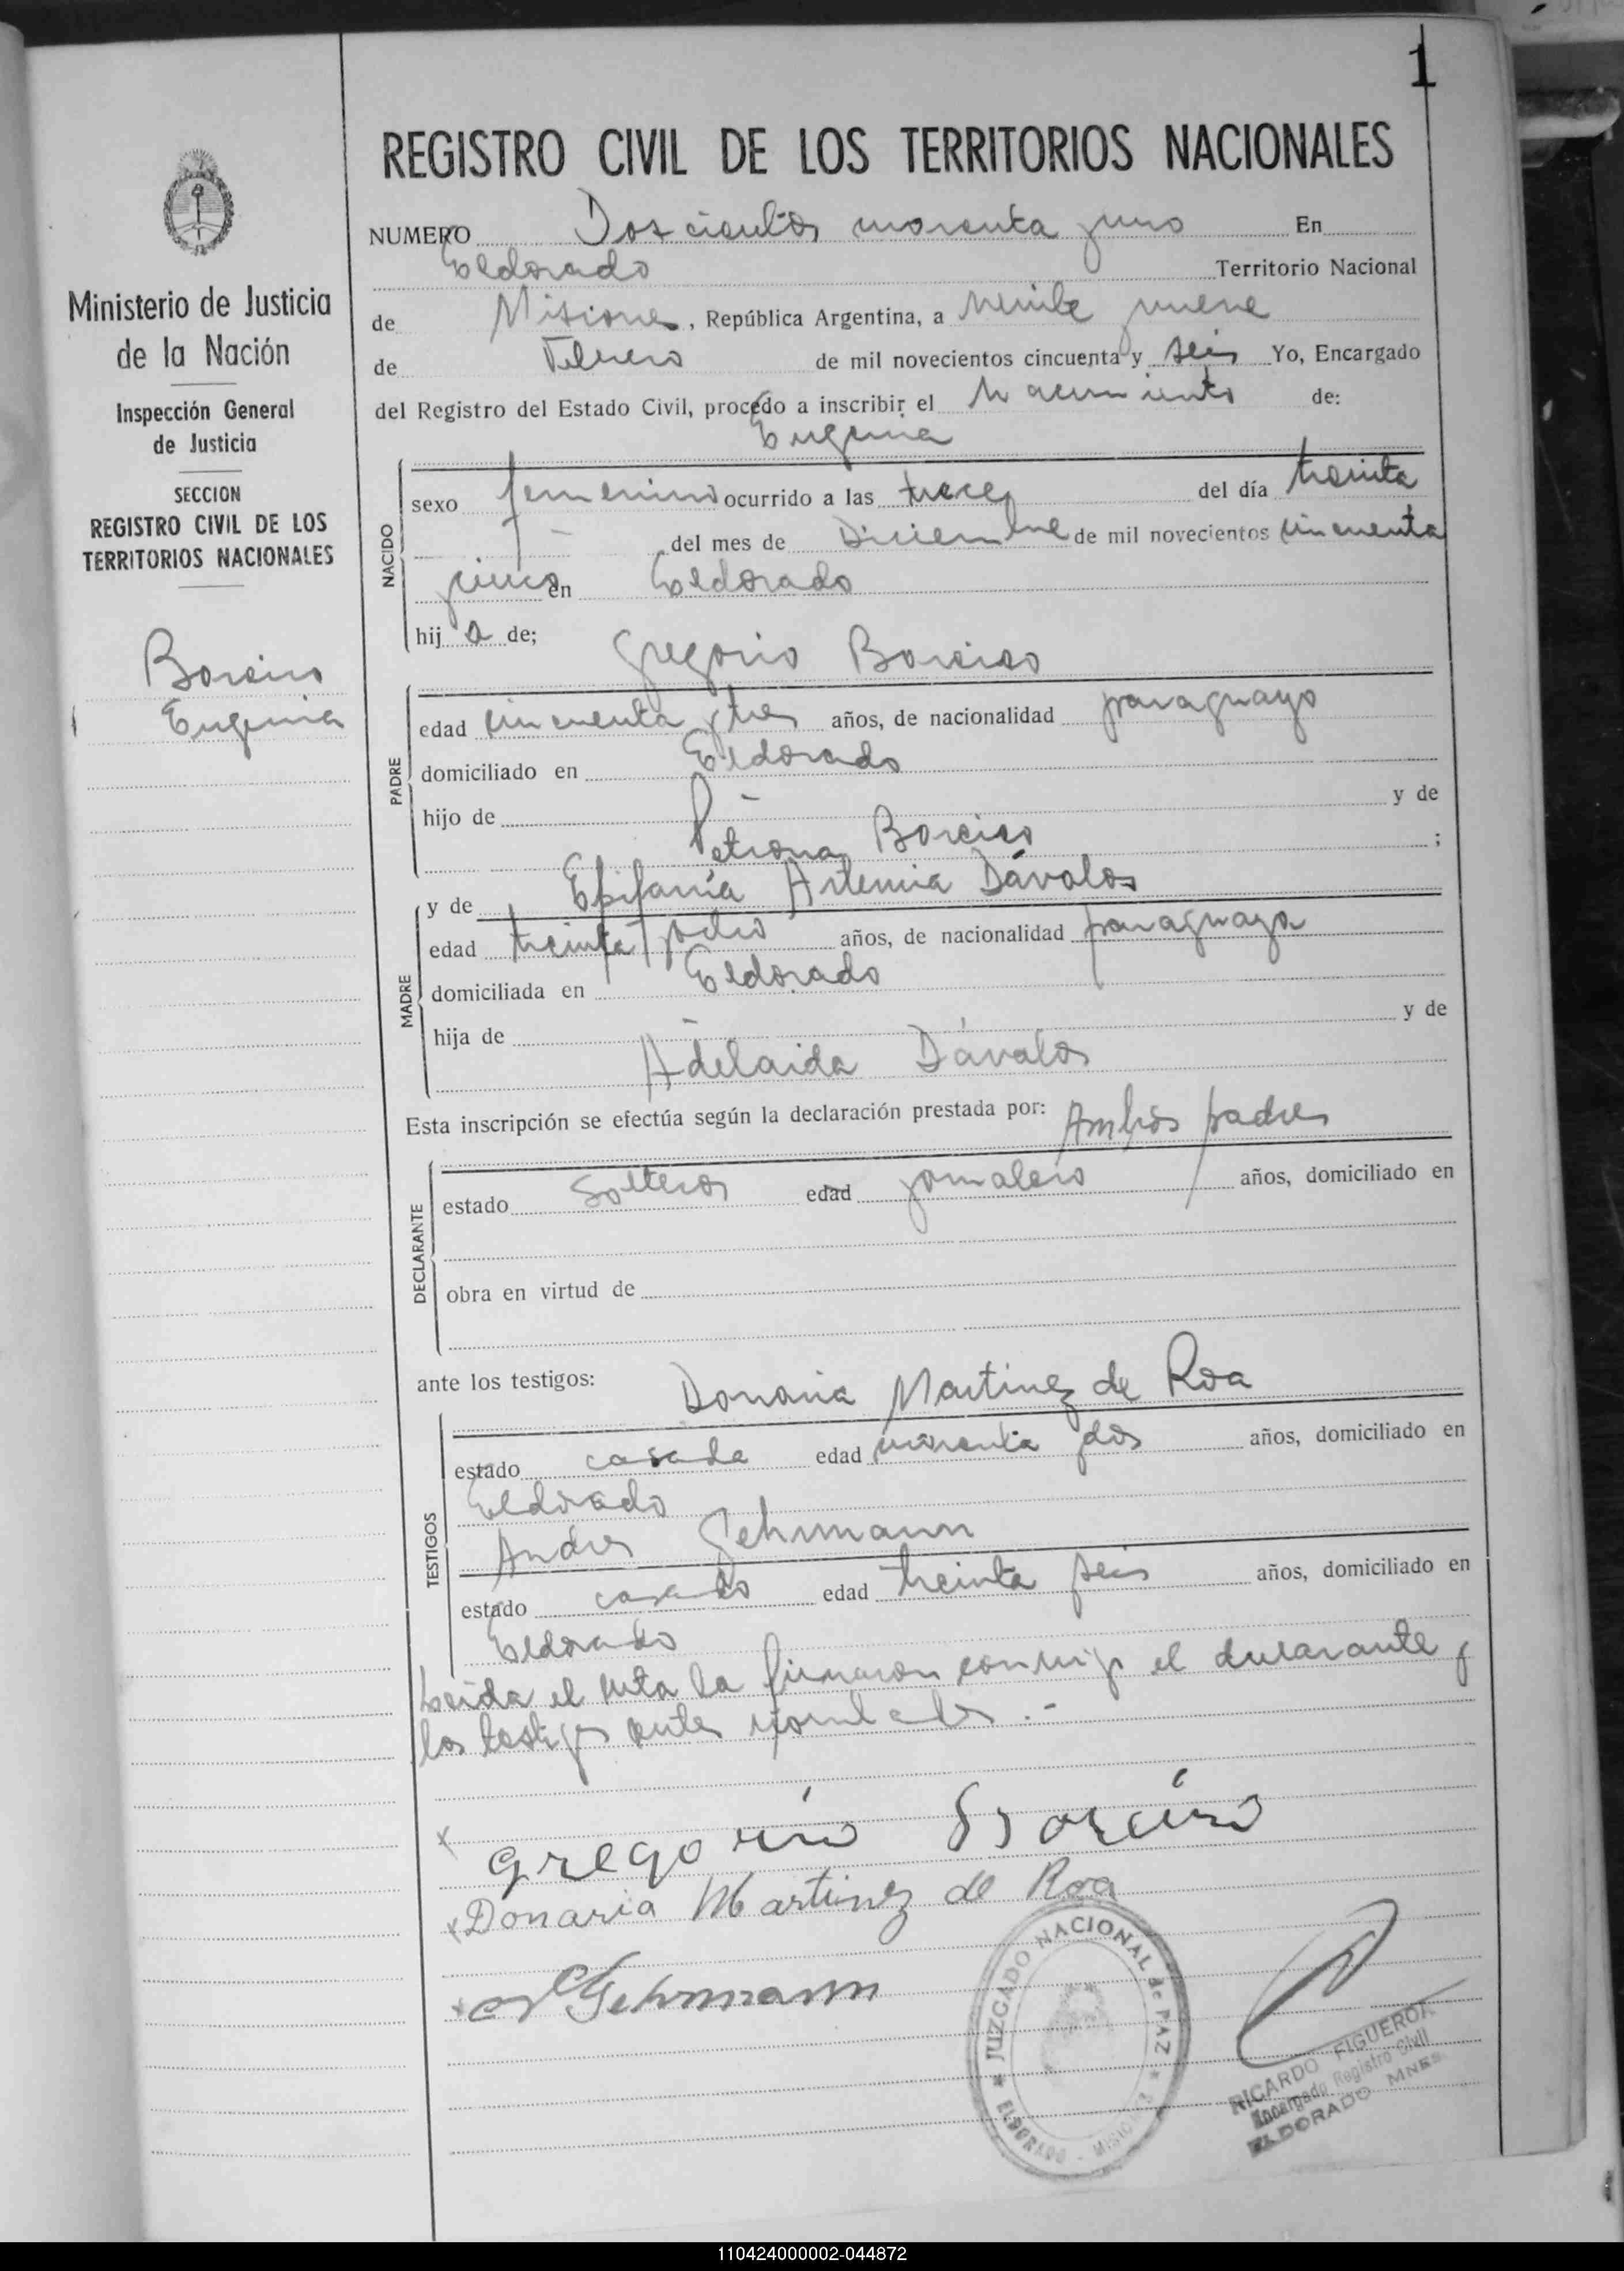 1
REGISTRO CIVIL DE LOS TERRITORIOS NACIONALES
Ministerio de Justicia
de la Nación
Inspección General
de Justicia
SECCION
REGISTRO CIVIL DE LOS
TERRITORIOS NACIONALES
Boreiro
Eugenia
NUMERO Doscientos noventa y uno En
Eldorado Territorio Nacional
de Misiones, República Argentina, a veinte y nueve
de Febrero de mil novecientos cincuenta y seis Yo, Encargado
del Registro del Estado Civil, procedo a inscribir el nacimiento de:
Eugenia
NACIDO
sexo femenino ocurrido a las trece del día treinta
del mes de Diciembre de mil novecientos cincuenta
y cinco en Eldorado
hij a de; Gregorio Boreiro
PADRE
edad cincuenta y tres años, de nacionalidad paraguayo
domiciliado en Eldorado
hijo de - y de
Petrona Boreiro ;
y de Epifanía Artemia Dávalos
MADRE
edad treinta y ocho años, de nacionalidad paraguaya
domiciliada en Eldorado
hija de - y de
Adelaida Dávalos
Esta inscripción se efectúa según la declaración prestada por: Ambos padres
DECLARANTE
estado Solteros edad jornalero años, domiciliado en
obra en virtud de
ante los testigos: Donaria Martinez de Roa
TESTIGOS
estado casada edad y dos años, domiciliado en
Eldorado
Andres Gehrmann
estado casado edad treinta y seis años, domiciliado en
Eldorado
Leida el acta la firmaron conmigo el declarante y
los testigos antes nombrados .-
x Gregorio Boreiro
x Donaria Martinez de Roa
x Gehrmann
JUZGADO NACIONAL de PAZ
ELDORADO - MISIONES
RICARDO FIGUEROA
Encargado Registro Civil
ELDORADO MNES
110424000002-044872